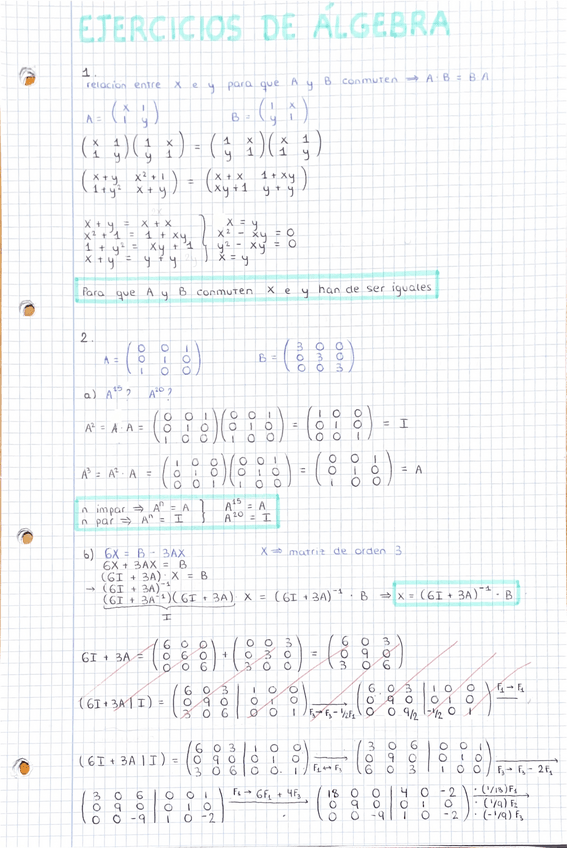 EJERCICIOS DE ÁLGEBRA
1.
relación entre x e y para que A y B conmuten ⇒ A·B = B·A
A = (x 1; 1 y) B = (1 x; y 1)
(x 1; 1 y)(1 x; y 1) = (1 x; y 1)(x 1; 1 y)
(x+y x²+1; 1+y² x+y) = (x+x 1+xy; xy+1 y+y)
x + y = x + x } x = y
x² + 1 = 1 + xy } x² - xy = 0
1 + y² = xy + 1 } y² - xy = 0
x + y = y + y } x = y
Para que A y B conmuten x e y han de ser iguales
2.
A = (0 0 1; 0 1 0; 1 0 0) B = (3 0 0; 0 3 0; 0 0 3)
a) A¹⁵? A²⁰?
A² = A · A = (0 0 1; 0 1 0; 1 0 0)(0 0 1; 0 1 0; 1 0 0) = (1 0 0; 0 1 0; 0 0 1) = I
A³ = A² · A = (1 0 0; 0 1 0; 0 0 1)(0 0 1; 0 1 0; 1 0 0) = (0 0 1; 0 1 0; 1 0 0) = A
n impar ⇒ Aⁿ = A } A¹⁵ = A
n par ⇒ Aⁿ = I } A²⁰ = I
b) 6X = B - 3AX X ⇒ matriz de orden 3
6X + 3AX = B
(6I + 3A) · X = B
→ (6I + 3A)⁻¹
(6I + 3A⁻¹)(6I + 3A) X = (6I + 3A)⁻¹ · B ⇒ x = (6I + 3A)⁻¹ · B
I
6I + 3A = (6 0 0; 0 6 0; 0 0 6) + (0 0 3; 0 3 0; 3 0 0) = (6 0 3; 0 9 0; 3 0 6)
(6I+3A | I) = (6 0 3 | 1 0 0; 0 9 0 | 0 1 0; 3 0 6 | 0 0 1) F₃→F₃-1/2F₁ (6 0 3 | 1 0 0; 0 9 0 | 0 1 0; 0 0 9/2 | -1/2 0 1) F₁→F₁
(6I + 3A | I) = (6 0 3 | 1 0 0; 0 9 0 | 0 1 0; 3 0 6 | 0 0 1) F₁↔F₃ (3 0 6 | 0 0 1; 0 9 0 | 0 1 0; 6 0 3 | 1 0 0) F₃→F₃-2F₁
(3 0 6 | 0 0 1; 0 9 0 | 0 1 0; 0 0 -9 | 1 0 -2) F₁→6F₁+4F₃ (18 0 0 | 4 0 -2; 0 9 0 | 0 1 0; 0 0 -9 | 1 0 -2) ·(1/18)F₁ ·(1/9)F₂ ·(-1/9)F₃